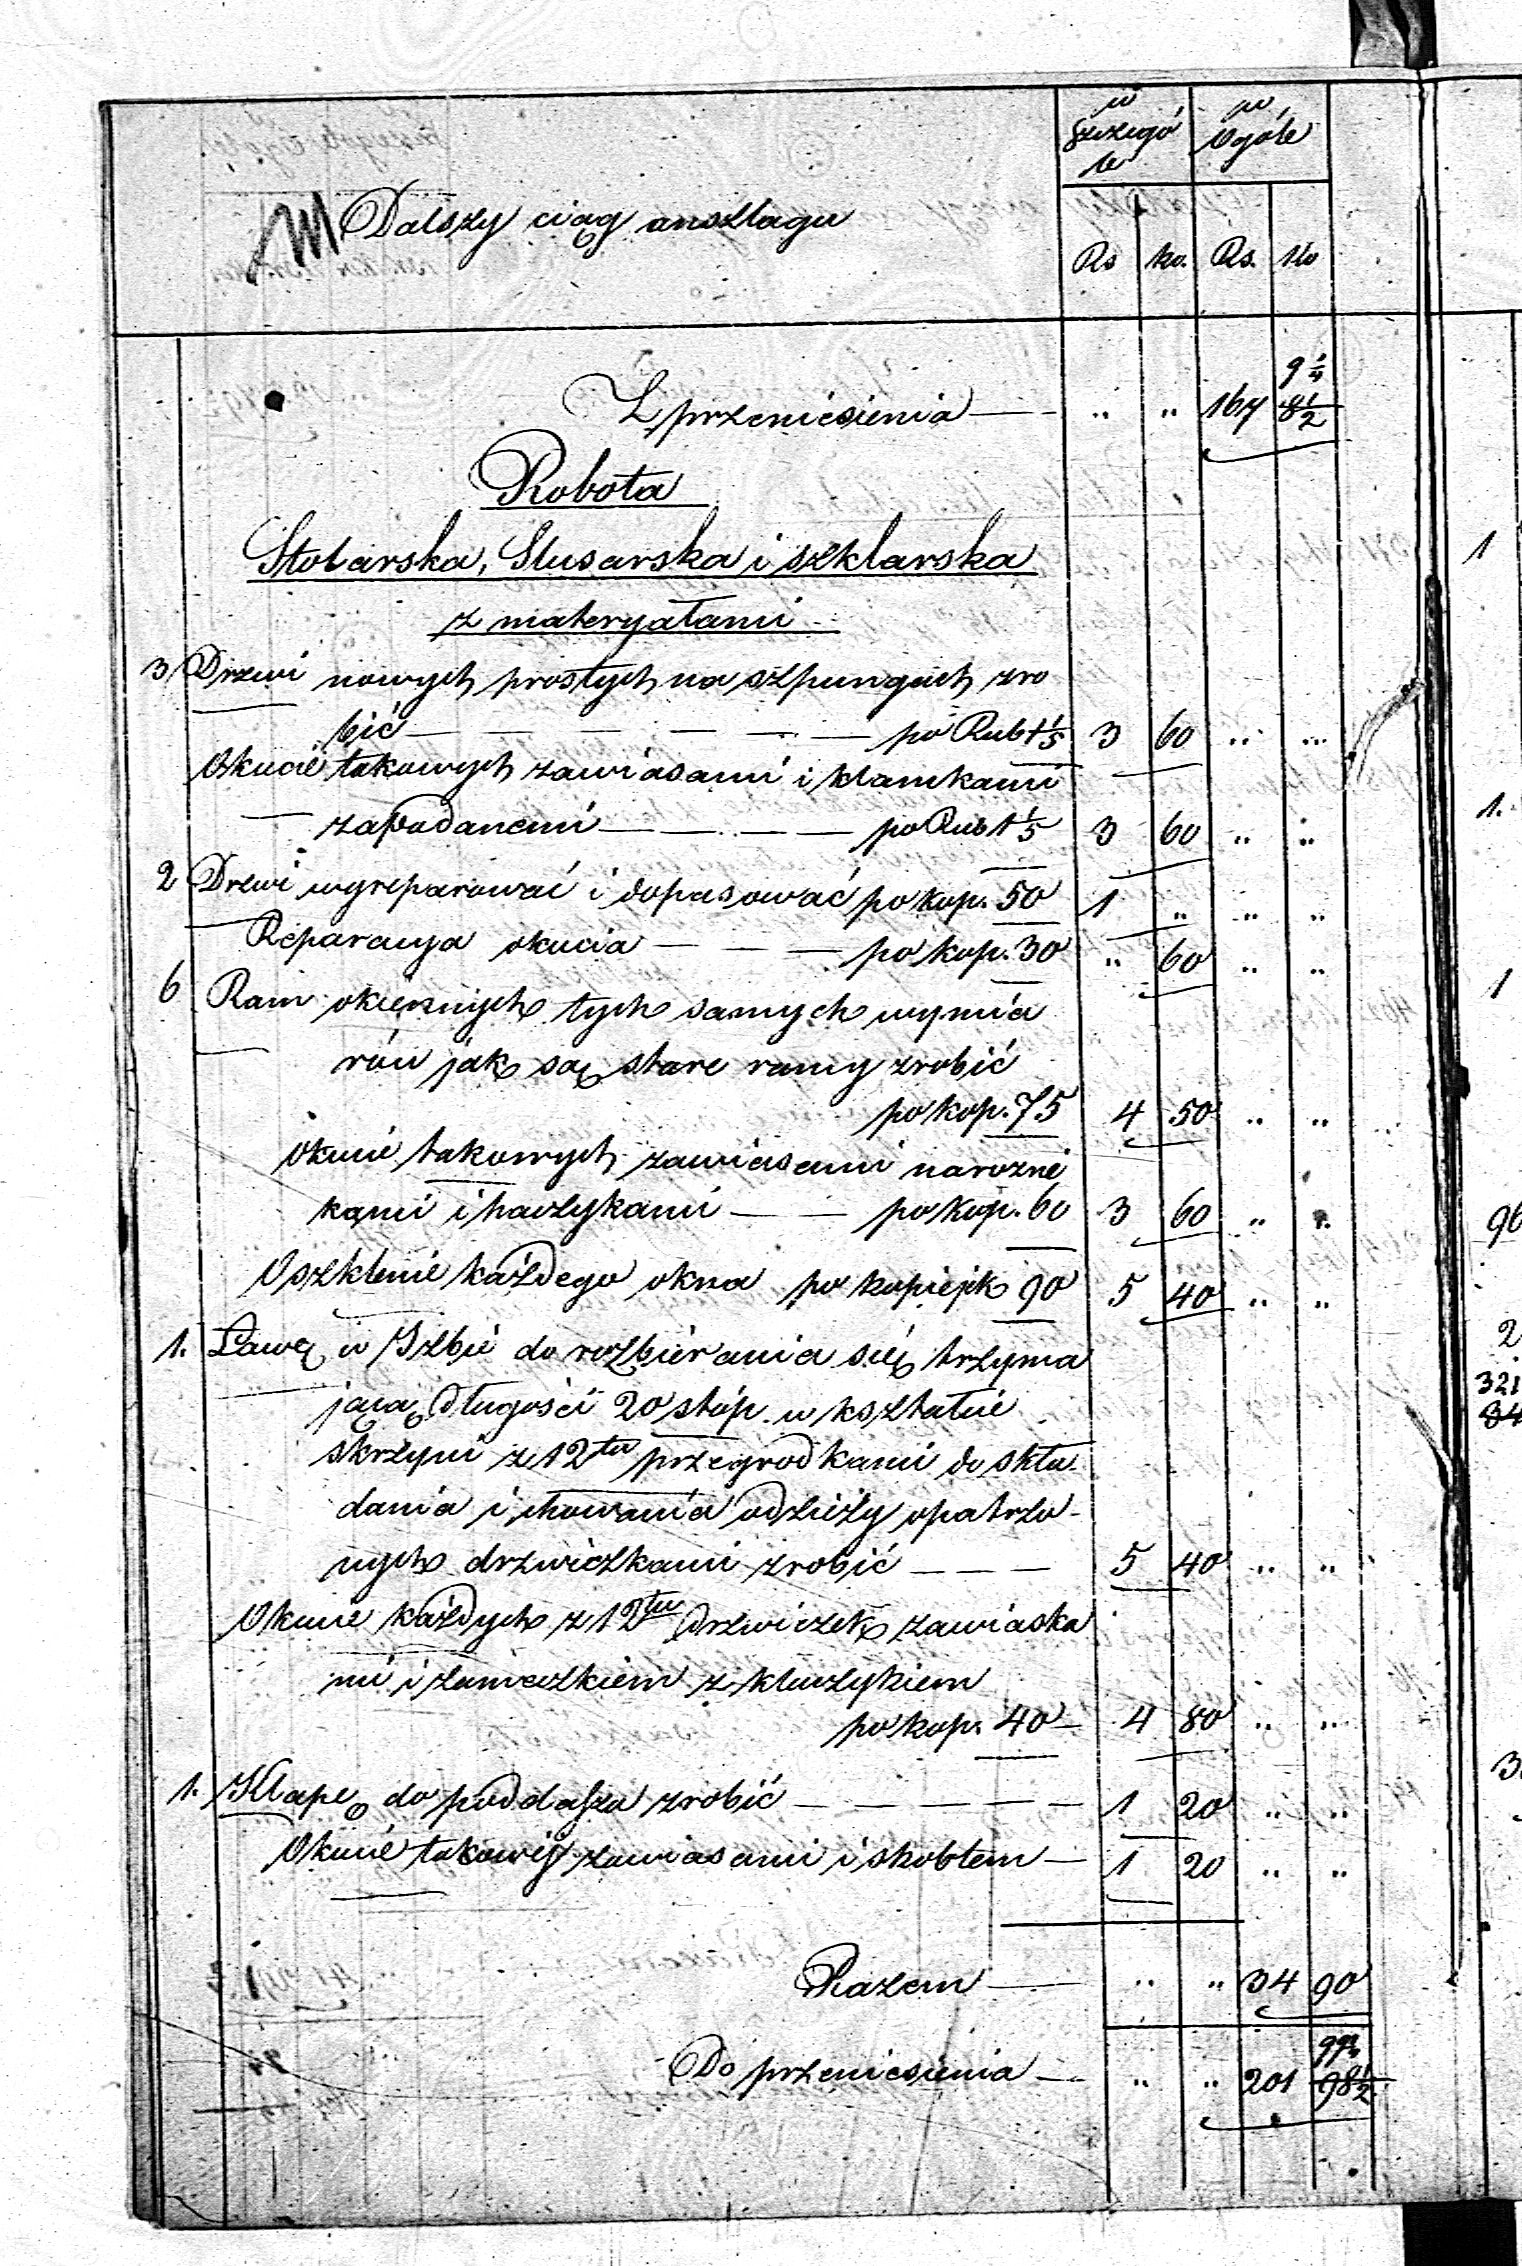 w szczegó w
le ogóle
Dalszy ciąg anszlagu
Rs ko. Rs. ko
Z przeniesienia — „ „ 167 9¼ 8½
Robota
Stolarska, Slusarska i szklarska
z materyałami
3 Drzwi nowych prostych na szpungach zro
bić — — — — — — po Rub 1 1/5 3 60 „ „
Okucie takowych zawiasami i klamkami
zapadanemi — — — — po Rub 1 1/5 3 60 „ „
2 Drzwi wyreparować i dopasować po kop. 50 1 „ „ „
Reparacya okucia — — — po kop. 30 „ 60 „ „
6 Ram okiennych tych samych wymia
rów jak są stare ramy zrobić
po kop. 75 4 50 „ „
Okucie takowych zawiasami narozni
kami i haczykami — — po kop. 60 3 60 „ „
Oszklenie każdego okna po kopiejk 90 5 40 „ „
1. Ławę w Izbie do rozbierania się trzyma
jącą długości 20 stóp w kształcie
skrzyni z 12tu przegrodkami do skła
dania i chowania odzieży opatrzo-
nych drzwiczkami zrobić — — — 5 40 „ „
Okucie każdych z 12tu drzwiczek zawiaska
mi i zameczkiem z kluczykiem
po kop. 40 — 4 80 „ „
1. Klapę do poddasza zrobić — — — — — 1 20 „ „
Okucie takowéj zawiasami i skoblem — 1 20 „ „
Razem — „ „ 34 90
Do przeniesienia — „ „ 201 98½
1
1.
1
96
2
321
34
3